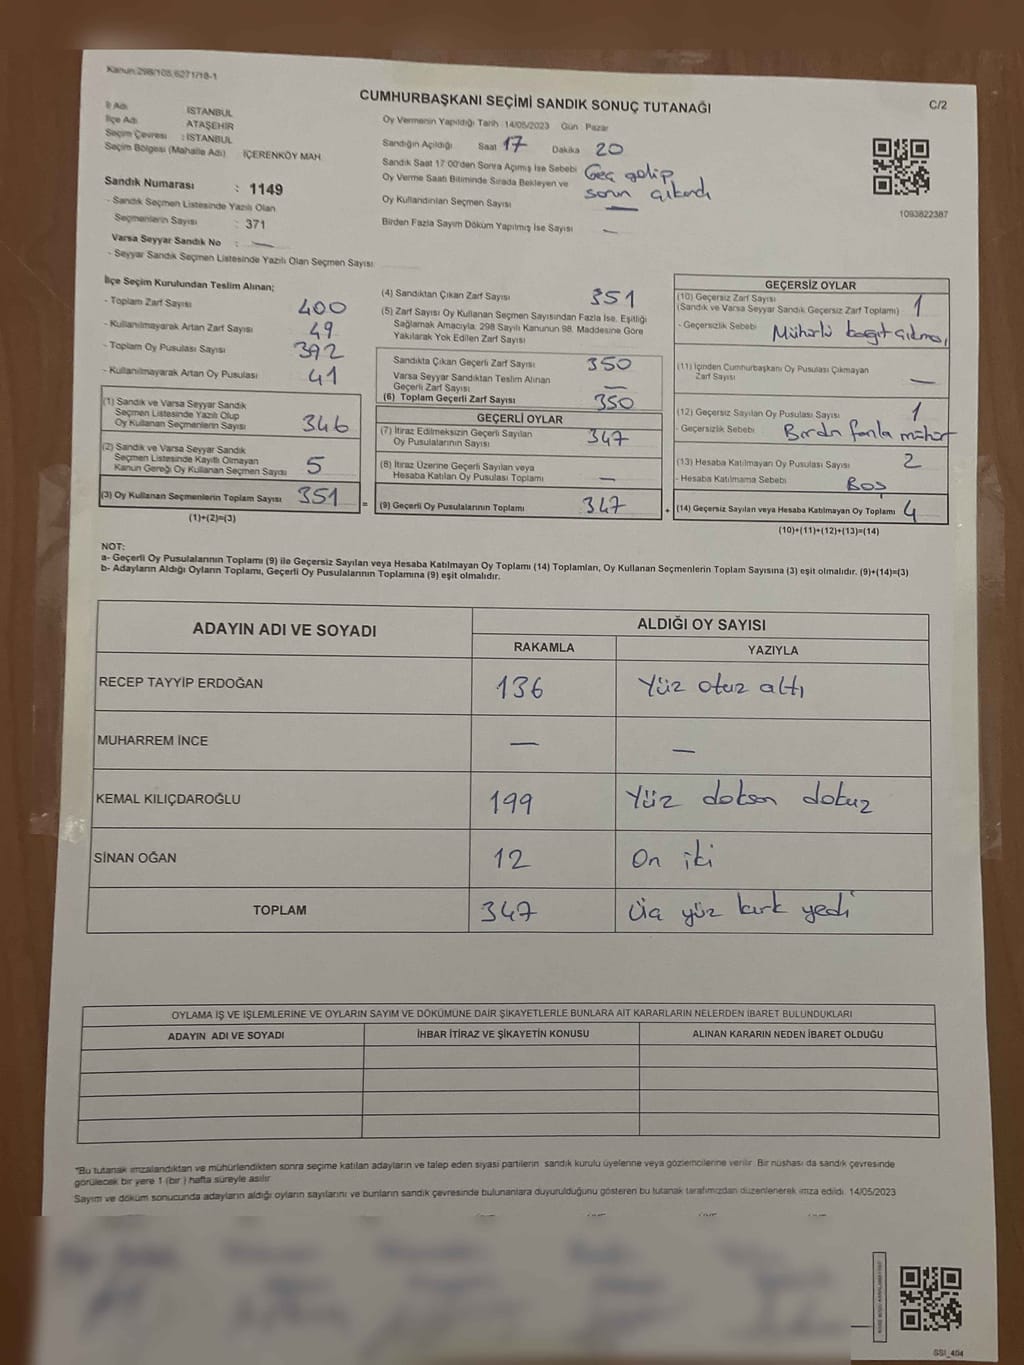 Kanun:298/105,6271/18-1
CUMHURBAŞKANI SEÇİMİ SANDIK SONUÇ TUTANAĞI
C/2
İl Adı : İSTANBUL
İlçe Adı : ATAŞEHİR
Seçim Çevresi : İSTANBUL
Seçim Bölgesi (Mahalle Adı) : İÇERENKÖY MAH.
Oy Vermenin Yapıldığı Tarih :14/05/2023 Gün : Pazar
Sandığın Açıldığı Saat 17 Dakika 20
Sandık Saat 17:00'den Sonra Açılmış İse Sebebi Geç gelip
Oy Verme Saati Bitiminde Sırada Bekleyen ve sorun çıkardı
Oy Kullandırılan Seçmen Sayısı —
Birden Fazla Sayım Döküm Yapılmış İse Sayısı —
1093822387
Sandık Numarası : 1149
- Sandık Seçmen Listesinde Yazılı Olan
Seçmenlerin Sayısı : 371
Varsa Seyyar Sandık No : —
- Seyyar Sandık Seçmen Listesinde Yazılı Olan Seçmen Sayısı:
İlçe Seçim Kurulundan Teslim Alınan;
- Toplam Zarf Sayısı 400
- Kullanılmayarak Artan Zarf Sayısı 49
- Toplam Oy Pusulası Sayısı 392
- Kullanılmayarak Artan Oy Pusulası 41
(1) Sandık ve Varsa Seyyar Sandık
Seçmen Listesinde Yazılı Olup
Oy Kullanan Seçmenlerin Sayısı 346
(2) Sandık ve Varsa Seyyar Sandık
Seçmen Listesinde Kayıtlı Olmayan
Kanun Gereği Oy Kullanan Seçmen Sayısı 5
(3) Oy Kullanan Seçmenlerin Toplam Sayısı 351
(1)+(2)=(3)
=
(4) Sandıktan Çıkan Zarf Sayısı 351
(5) Zarf Sayısı Oy Kullanan Seçmen Sayısından Fazla İse, Eşitliği
Sağlamak Amacıyla, 298 Sayılı Kanunun 98. Maddesine Göre
Yakılarak Yok Edilen Zarf Sayısı
Sandıkta Çıkan Geçerli Zarf Sayısı 350
Varsa Seyyar Sandıktan Teslim Alınan
Geçerli Zarf Sayısı —
(6) Toplam Geçerli Zarf Sayısı 350
GEÇERLİ OYLAR
(7) İtiraz Edilmeksizin Geçerli Sayılan
Oy Pusulalarının Sayısı 347
(8) İtiraz Üzerine Geçerli Sayılan veya
Hesaba Katılan Oy Pusulası Toplamı —
(9) Geçerli Oy Pusulalarının Toplamı 347
+
GEÇERSİZ OYLAR
(10) Geçersiz Zarf Sayısı 1
(Sandık ve Varsa Seyyar Sandık Geçersiz Zarf Toplamı)
- Geçersizlik Sebebi Mühürlü kağıt çıkması
(11) İçinden Cumhurbaşkanı Oy Pusulası Çıkmayan
Zarf Sayısı —
(12) Geçersiz Sayılan Oy Pusulası Sayısı 1
- Geçersizlik Sebebi Birden fazla mühür
(13) Hesaba Katılmayan Oy Pusulası Sayısı 2
- Hesaba Katılmama Sebebi Boş
(14) Geçersiz Sayılan veya Hesaba Katılmayan Oy Toplamı 4
(10)+(11)+(12)+(13)=(14)
NOT:
a- Geçerli Oy Pusulalarının Toplamı (9) ile Geçersiz Sayılan veya Hesaba Katılmayan Oy Toplamı (14) Toplamları, Oy Kullanan Seçmenlerin Toplam Sayısına (3) eşit olmalıdır. (9)+(14)=(3)
b- Adayların Aldığı Oyların Toplamı, Geçerli Oy Pusulalarının Toplamına (9) eşit olmalıdır.
ADAYIN ADI VE SOYADI ALDIĞI OY SAYISI
RAKAMLA YAZIYLA
RECEP TAYYİP ERDOĞAN 136 Yüz otuz altı
MUHARREM İNCE — —
KEMAL KILIÇDAROĞLU 199 Yüz doksan dokuz
SİNAN OĞAN 12 On iki
TOPLAM 347 Üç yüz kırk yedi
OYLAMA İŞ VE İŞLEMLERİNE VE OYLARIN SAYIM VE DÖKÜMÜNE DAİR ŞİKAYETLERLE BUNLARA AİT KARARLARIN NELERDEN İBARET BULUNDUKLARI
ADAYIN ADI VE SOYADI İHBAR İTİRAZ VE ŞİKAYETİN KONUSU ALINAN KARARIN NEDEN İBARET OLDUĞU
*Bu tutanak imzalandıktan ve mühürlendikten sonra seçime katılan adayların ve talep eden siyasi partilerin sandık kurulu üyelerine veya gözlemcilerine verilir. Bir nüshası da sandık çevresinde
görülecek bir yere 1 (bir ) hafta süreyle asılır.
Sayım ve döküm sonucunda adayların aldığı oyların sayılarını ve bunların sandık çevresinde bulunanlara duyurulduğunu gösteren bu tutanak tarafımızdan düzenlenerek imza edildi. 14/05/2023
SSI_404